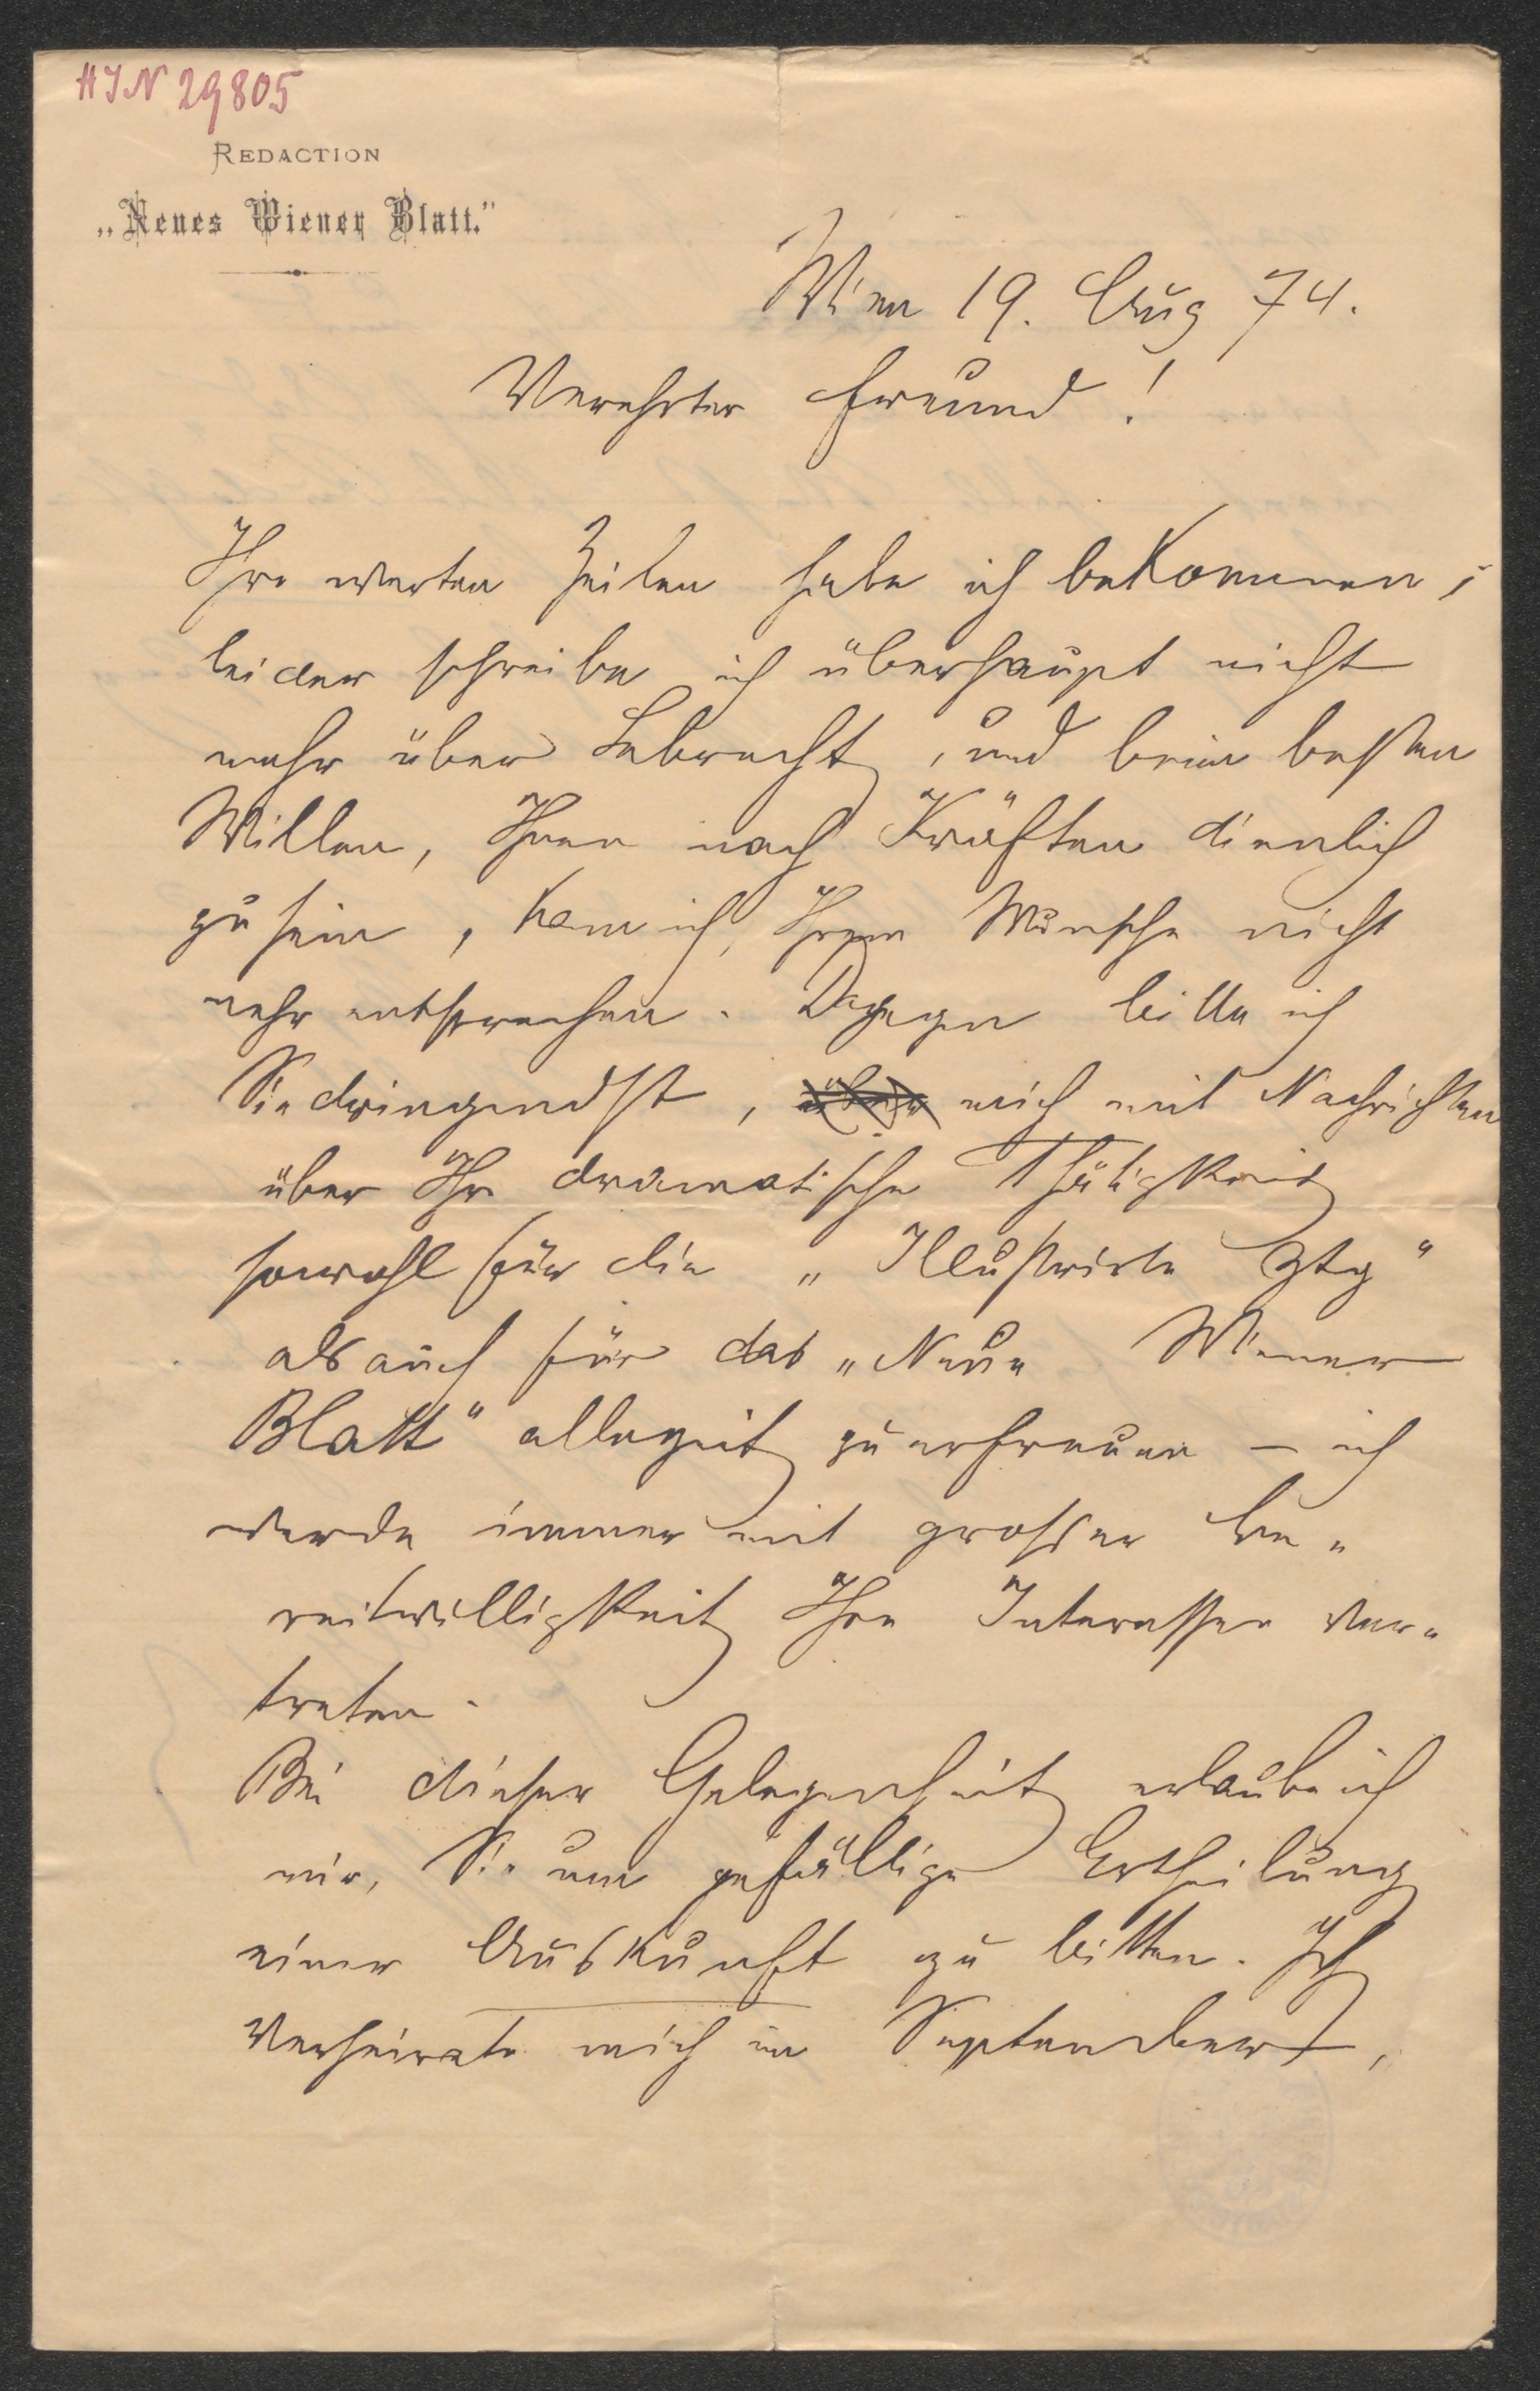 HIN 29805
REDACTION
„Neues Wiener Blatt."
Wien 19. Aug 74.
Verehrter Freund!
Ihre werten Zeilen habe ich bekommen;
leider schreibe ich überhaupt nicht
mehr über , und beim besten
Willen, Ihnen nach Kräften dienlich
zu sein, kann ich Ihrem Wunsche nicht
mehr entsprechen. Dagegen bitte ich
Sie dringendst, über mich mit Nachrichten
über Ihre dramatische Thätigkeit
sowohl für die „Illustrirte Ztg"
als auch für das „Neue Wiener
Blatt" allezeit zu erfreuen – ich
werde immer mit grosser Be-
reitwilligkeit Ihre Interessen ver-
treten.
Bei dieser Gelegenheit erlaube ich
mir, Sie um gefällige Ertheilung
einer Auskunft zu bitten. Ich
verheirate mich im September,